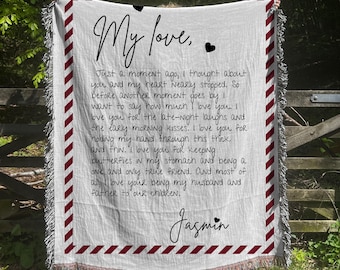 My love,
Just a moment ago, I thought about
you and my heart nearly stopped. So
before another moment goes by I
want to say how much I love you. I
love you for the late-night laughs and
the early morning kisses. I love you for
holding my hand through this thick
and thin. I love you for keeping
butterflies in my stomach and being a
one and only true friend. And most of
all I love your being my husband and
father to our children.
Jasmin